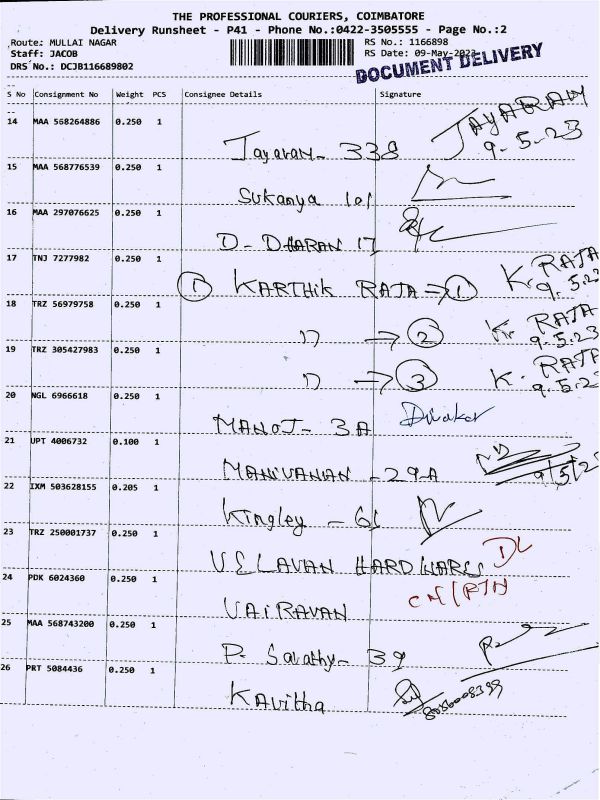 THE PROFESSIONAL COURIERS, COIMBATORE
Delivery Runsheet - P41 - Phone No.:0422-3505555 - Page No.:2
Route: MULLAI NAGAR RS No.: 1166898
Staff: JACOB RS Date: 09-May-2023
DRS No.: DCJB116689802
DOCUMENT DELIVERY
S No Consignment No Weight PCS Consignee Details Signature
14 MAA 568264886 0.250 1 Jayaram - 338 JAYARAM
9-5-23
15 MAA 568776539 0.250 1 Sukanya 101
16 MAA 297076625 0.250 1 D-DHARAN 17
17 TNJ 7277982 0.250 1 ① KARTHIK RAJA ⇒ ① K. RAJA
9.5.23
18 TRZ 56979758 0.250 1 → ② K. RAJA
9.5.23
19 TRZ 305427983 0.250 1 → ③ K. RAJA
9.5.23
20 NGL 6966618 0.250 1 MANOJ - 3A Diwakar
21 UPT 4006732 0.100 1 MANIVANAN - 29-A
9/5/2
22 IXM 503628155 0.205 1 Kingley - 61
23 TRZ 250001737 0.250 1 VELAVAN HARDWARES DL
24 PDK 6024360 0.250 1 VAIRAVAN CN/RTN
25 MAA 568743200 0.250 1 P. Sarathy - 39
26 PRT 5084436 0.250 1 Kavitha 8056008399